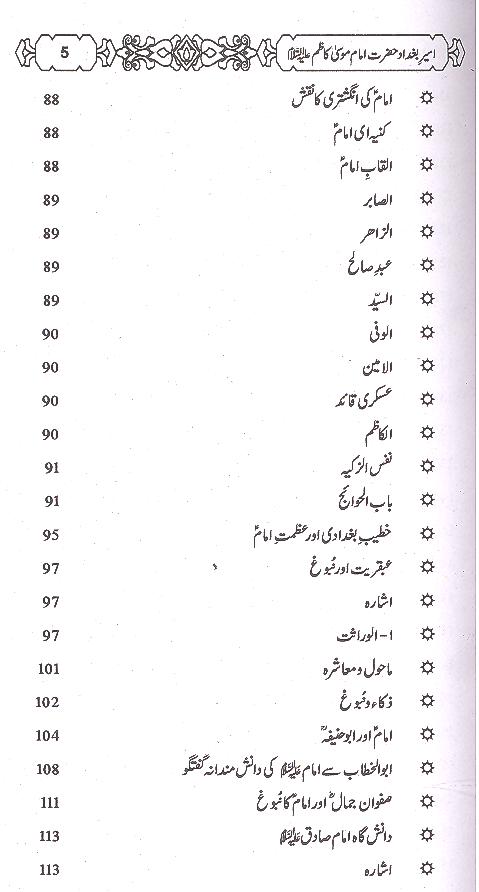 امیرِ بغداد حضرت امام موسیٰ کاظم علیہ السلام 5
امامؑ کی انگشتری کا نقش 88
کنیہ ای امامؑ 88
القابِ امامؑ 88
الصابر 89
الزاھر 89
عبدِ صالح 89
السیّد 89
الوفی 90
الامین 90
عسکری قائد 90
الکاظم 90
نفس الزکیہ 91
باب الحوائج 91
خطیب بغدادی اور عظمتِ امامؑ 95
عبقریت اور نُبوغ 97
اشارہ 97
۱- الوراثت 97
ماحول و معاشرہ 101
ذکاء و نُبوغ 102
امامؑ اور ابوحنیفہؒ 104
ابوالخطاب سے امام علیہ السلام کی دانش مندانہ گفتگو 108
صفوان جمالؓ اور امامؑ کا نُبوغ 111
دانش گاہ امام صادق علیہ السلام 113
اشارہ 113